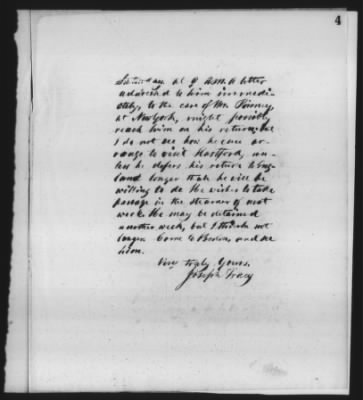 4
Saturday at 9 A.M. A letter
addressed to him immedi-
ately, to the care of Mr. Pinney,
at New York, might possibly
reach him on his return; but
I do not see how he can ar-
range to visit Hartford, un-
less he defers his return to Eng-
land longer than he will be
willing to do. He wishes to take
passage in the steamer of next
week. He may be detained
another week, but I think not
longer. Come to Boston, and see
him.
Very truly Yours,
Joseph Tracy